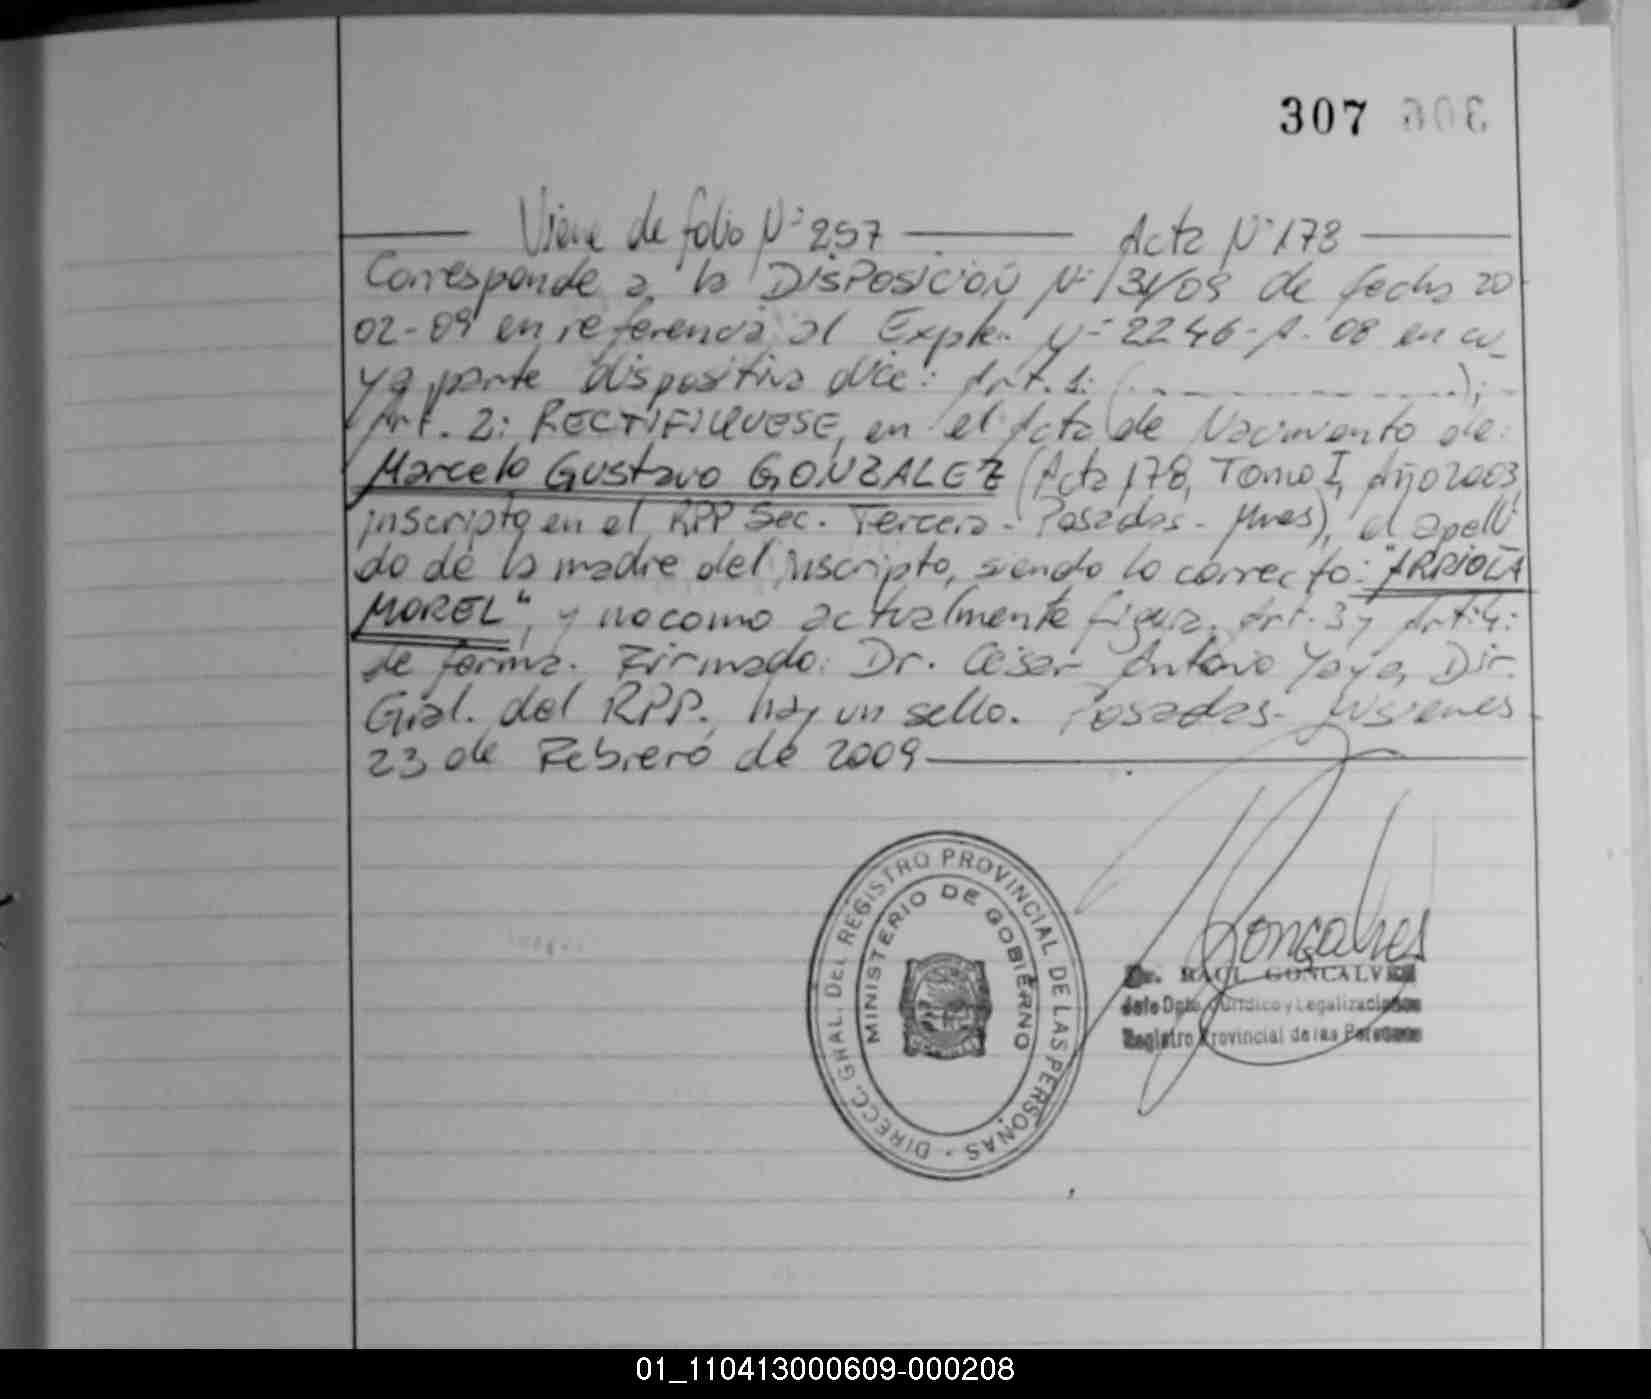 307 306
Viene de folio Nº 257 Acta Nº 178
Corresponde a la DISPOSICIÓN Nº 134/09 de fecha 20
02-09 en referencia al Expte. Nº 2246-A-08 en cu_
ya parte dispositiva dice: Art. 1: (- - - - - - - - - -);
Art. 2: RECTIFIQUESE, en el Acta de Nacimiento de:
Marcelo Gustavo GONZALEZ (Acta 178, Tomo I, Año 2003,
inscripto en el RPP Sec. Tercera - Posadas - Mnes), el apelli
do de la madre del inscripto, siendo lo correcto: "ARRIOLA
MOREL", y no como actualmente figura. Art. 3 y Art. 4:
de forma. Firmado: Dr. César Antonio Yaya, Dir.
Gral. del RPP. hay un sello. Posadas - Misiones
23 de Febrero de 2009
DIRECC. GRAL. DEL REGISTRO PROVINCIAL DE LAS PERSONAS -
MINISTERIO DE GOBIERNO
Gonçalves
Dr. RAUL GONCALVES
Jefe Dpto. Jurídico y Legalizaciones
Registro Provincial de las Personas
01_110413000609-000208